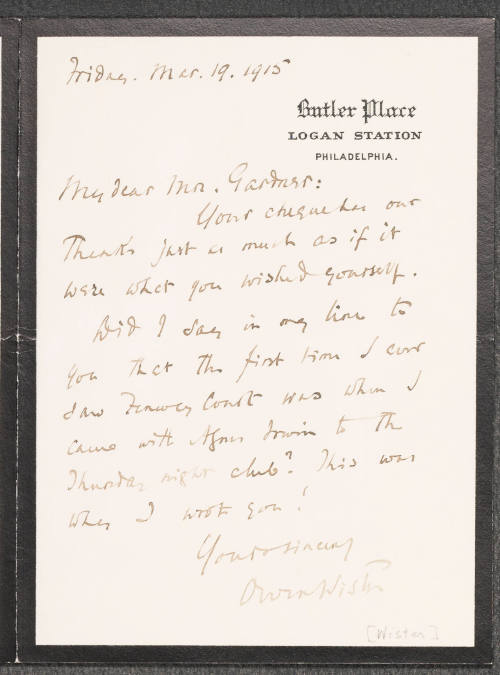 Friday. Mar. 19. 1915
Butler Place
LOGAN STATION
PHILADELPHIA.
My dear Mrs. Gardner:
Your cheque has our
thanks just as much as if it
were what you wished yourself.
Did I say in my line to
you that the first time I ever
saw Fenway Court was when I
came with Agnes Irwin to the
Thursday night club? This was
why I wrote you!
Yours sincerely
Owen Wister
[Wister]